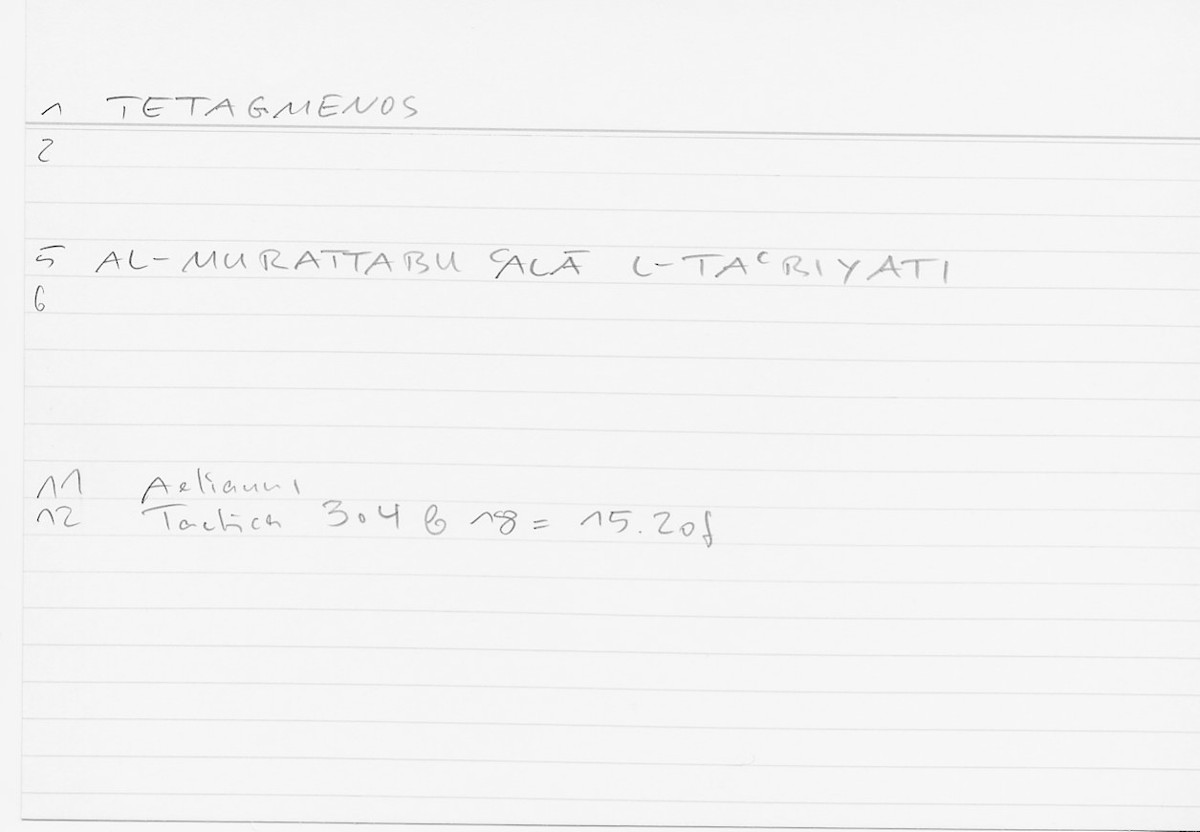 1 TETAGMENOS
2
5 AL-MURATTABU ʿALĀ L-TAʿBIYATI
6
11 Aelianus
12 Tactica 304 b 18 = 15.20f